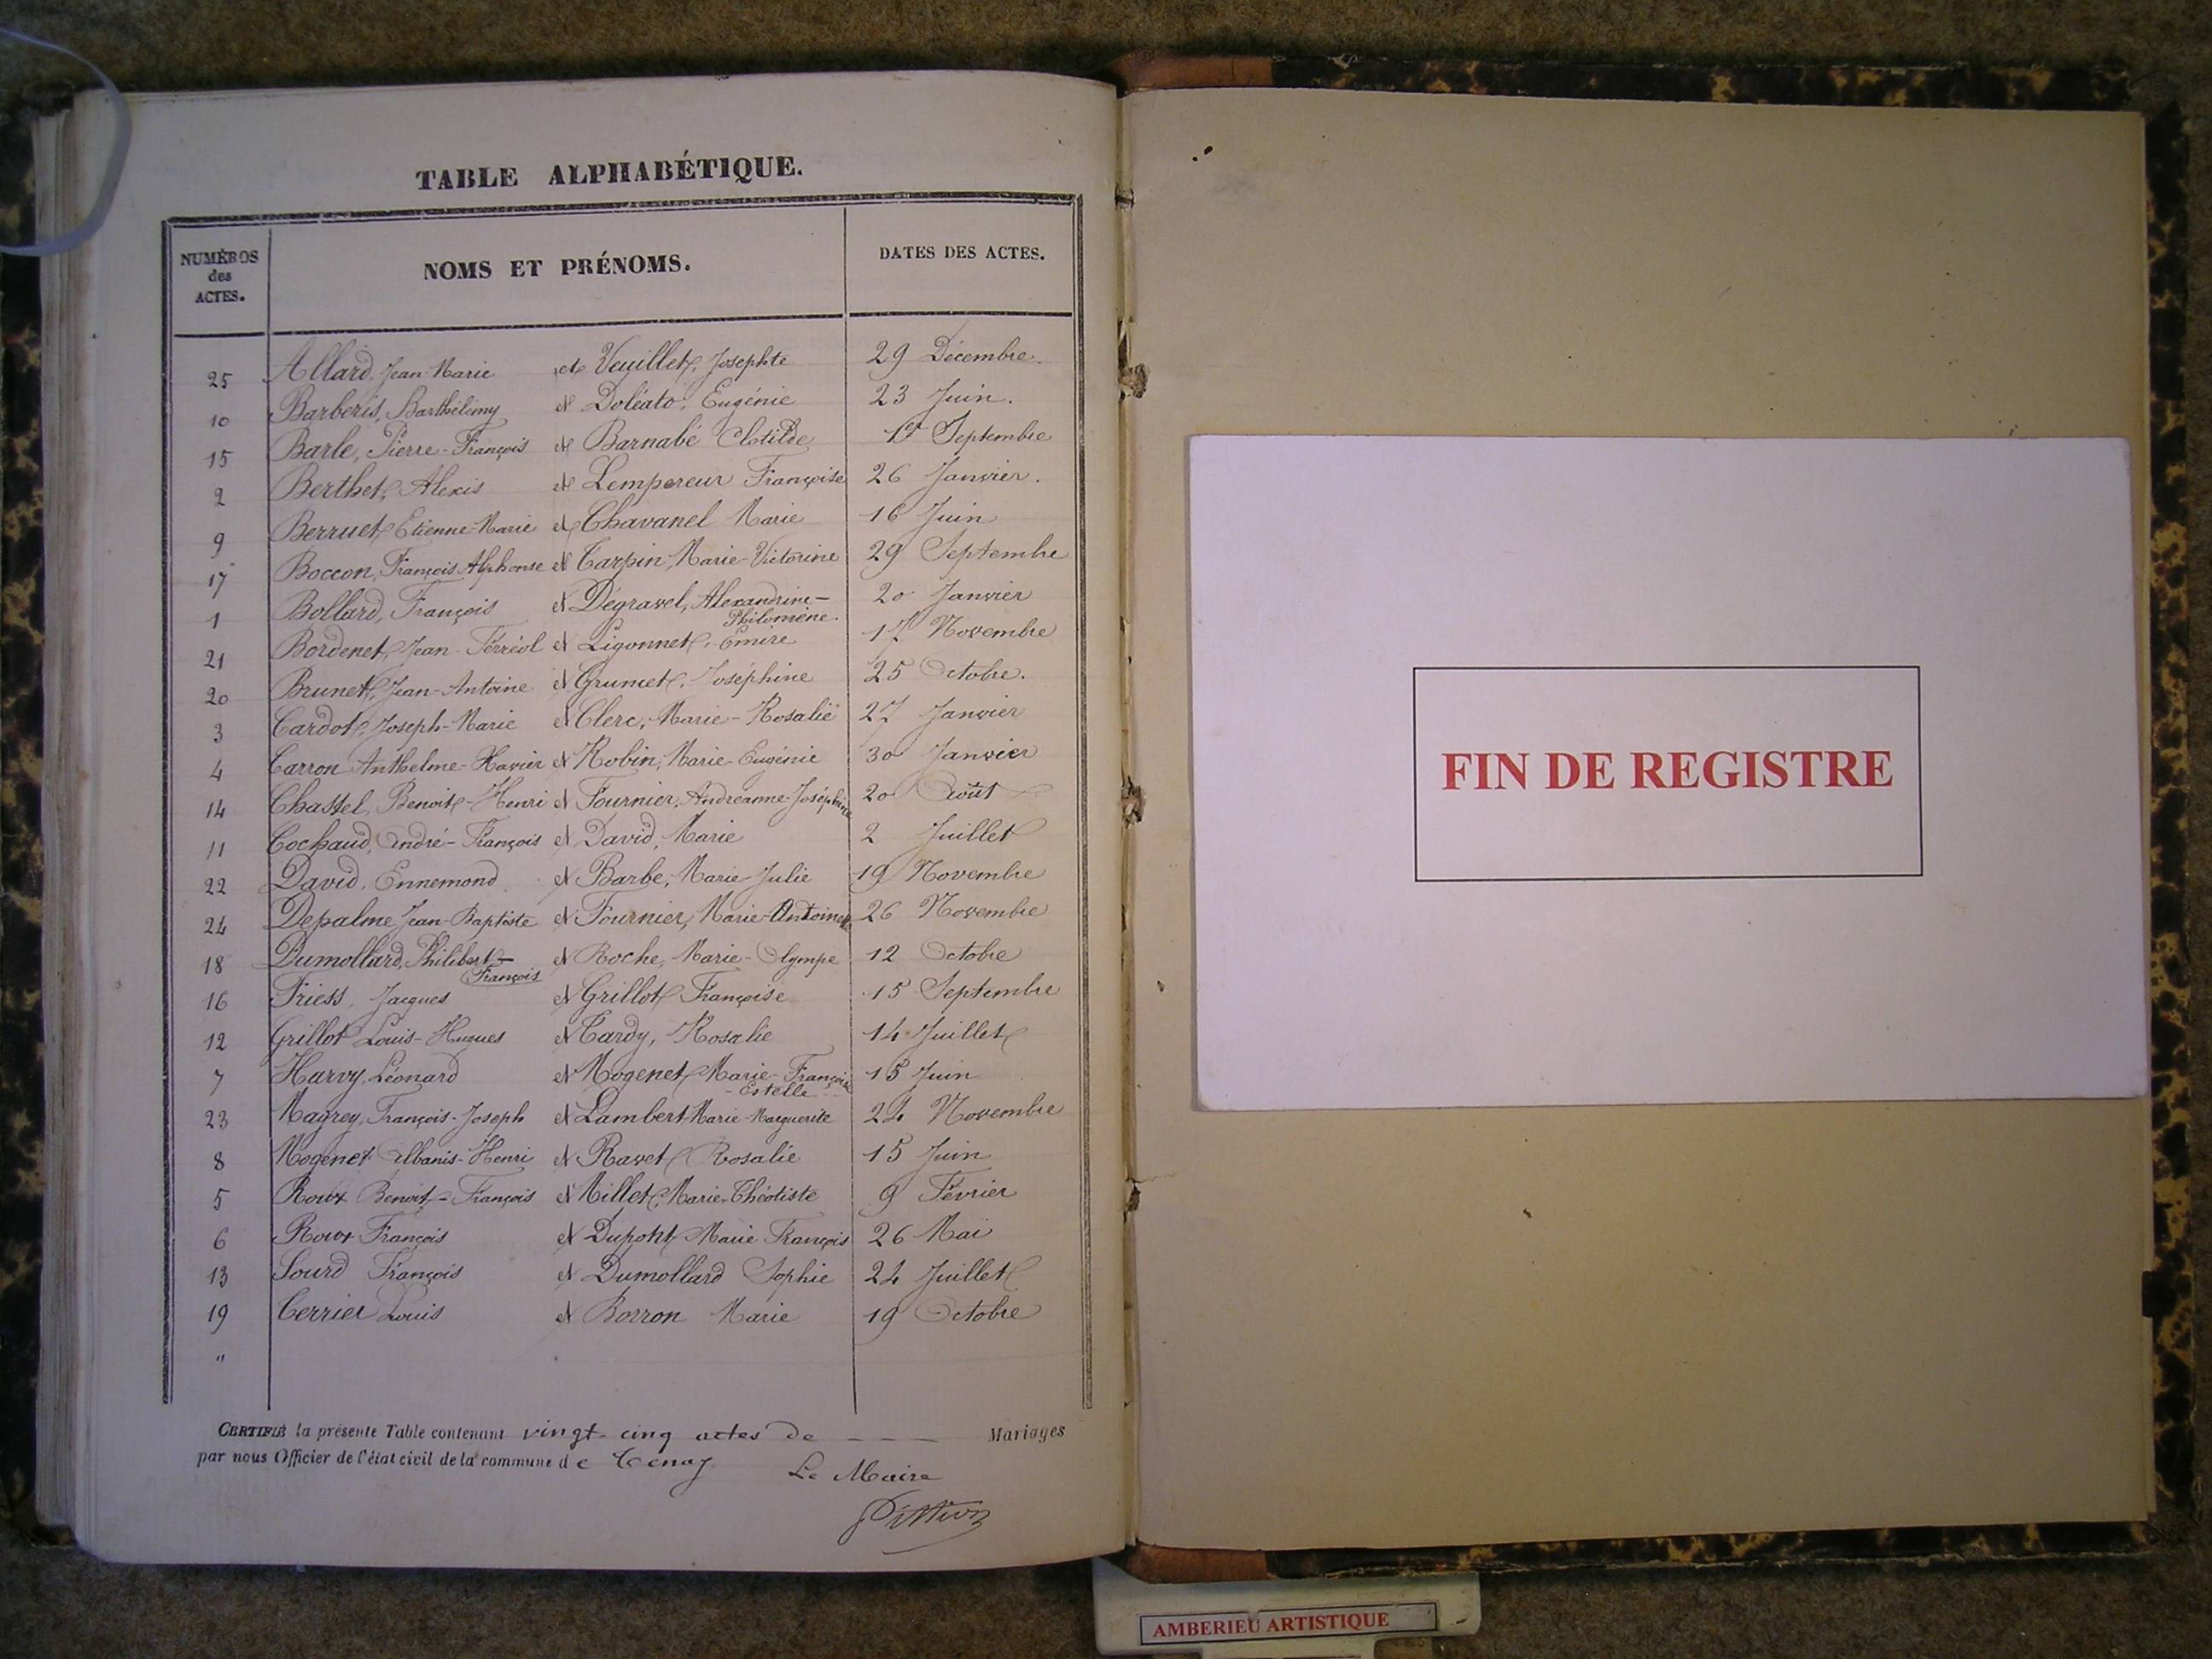 TABLE ALPHABÉTIQUE.
NUMÉROS des ACTES. NOMS ET PRÉNOMS. DATES DES ACTES.
25 Allard, Jean-Marie et Veuillet, Josephte 29 Décembre.
10 Barberis, Barthélémy et Doléato, Eugénie 23 Juin.
15 Barle, Pierre-François et Barnabé Clotilde 1er Septembre
2 Berthet, Alexis et Lempereur Françoise 26 Janvier.
9 Berruet Etienne-Marie et Chavanel Marie 16 Juin
17 Boccon, François Alphonse et Carpin, Marie-Victorine 29 Septembre
1 Bollard, François et Dégravel, Alexandrine-Philomène. 20 Janvier
21 Bordenet, Jean-Ferréol et Ligonnet, Emire 17 Novembre
20 Brunet, Jean-Antoine et Grumet, Joséphine 25 Octobre.
3 Cardot, Joseph-Marie et Clerc, Marie-Rosalie 27 Janvier
4 Carron Anthelme-Xavier et Robin, Marie-Eugénie 30 Janvier
14 Chastel, Benoit-Henri et Fournier, Andréanne-Joséphine 20 Août
11 Cochaud, André-François et David, Marie 2 Juillet
22 David, Ennemond et Barbe, Marie-Julie 19 Novembre
24 Depalme Jean-Baptiste et Fournier, Marie-Antoinette 26 Novembre
18 Dumollard, Philibert-François et Roche, Marie-Olympe 12 Octobre
16 Friess, Jacques et Grillot Françoise 15 Septembre
12 Grillot Louis-Hugues et Tardy, Rosalie 14 Juillet
7 Harvy, Léonard et Mogenet Marie-Françoise-Estelle 15 Juin
23 Magrey, François-Joseph et Lambert Marie-Marguerite 24 Novembre
8 Mogenet Albanis-Henri et Ravet Rosalie 15 Juin
5 Roux Benoit-François et Millet, Marie-Théotiste 9 Février
6 Roux François et Dupont Marie François 26 Mai
13 Sourd François et Dumollard Sophie 24 Juillet
19 Terrier Louis et Borron Marie 19 Octobre
"
CERTIFIÉ la présente Table contenant vingt-cinq actes de ——— Mariages
par nous Officier de l'état civil de la commune de Tenay
Le Maire
FIN DE REGISTRE
AMBERIEU ARTISTIQUE